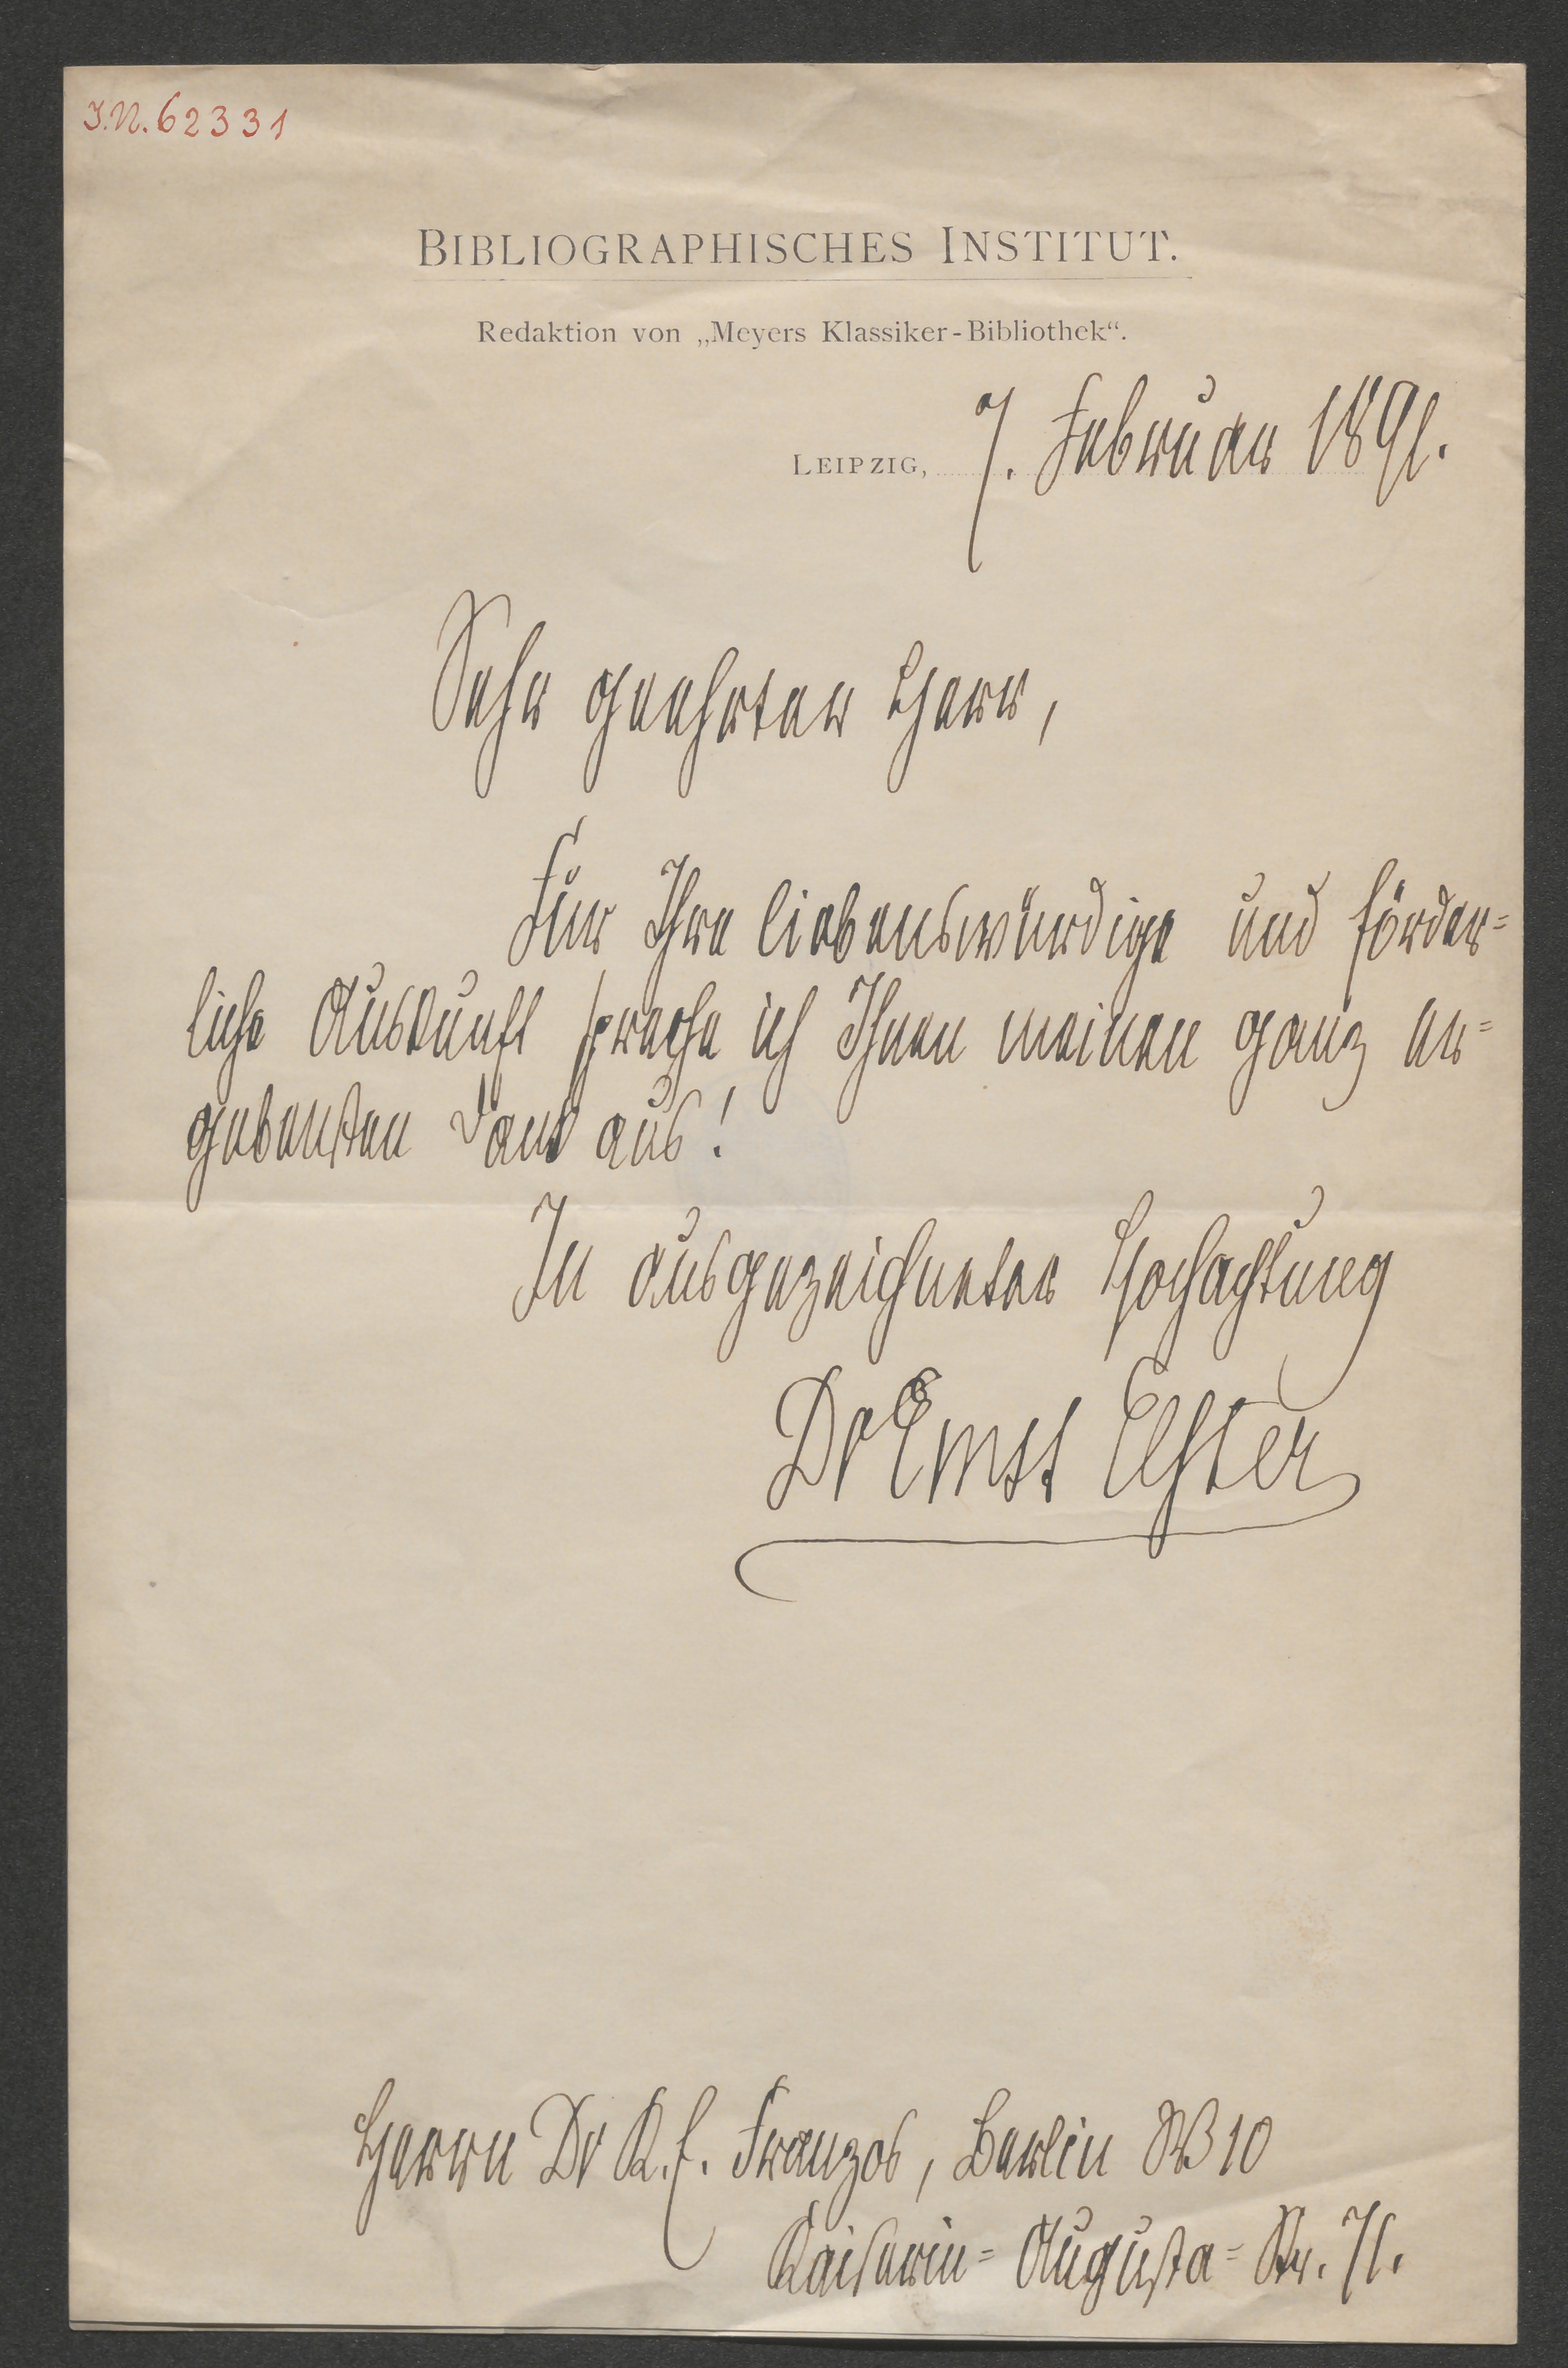 I.N. 62331
BIBLIOGRAPHISCHES INSTITUT.
Redaktion von „Meyers Klassiker-Bibliothek“.
LEIPZIG, 7. Februar 1891.
Sehr geehrter Herr,
Für Ihre liebenswürdige und förder-
liche Auskunft spreche ich Ihnen meinen ganz er-
gebensten Dank aus!
In ausgezeichneter Hochachtung
Dr Ernst Elster
Herrn Dr K. E. Franzos, Berlin W 10
Kaiserin-Augusta-Str. 71.